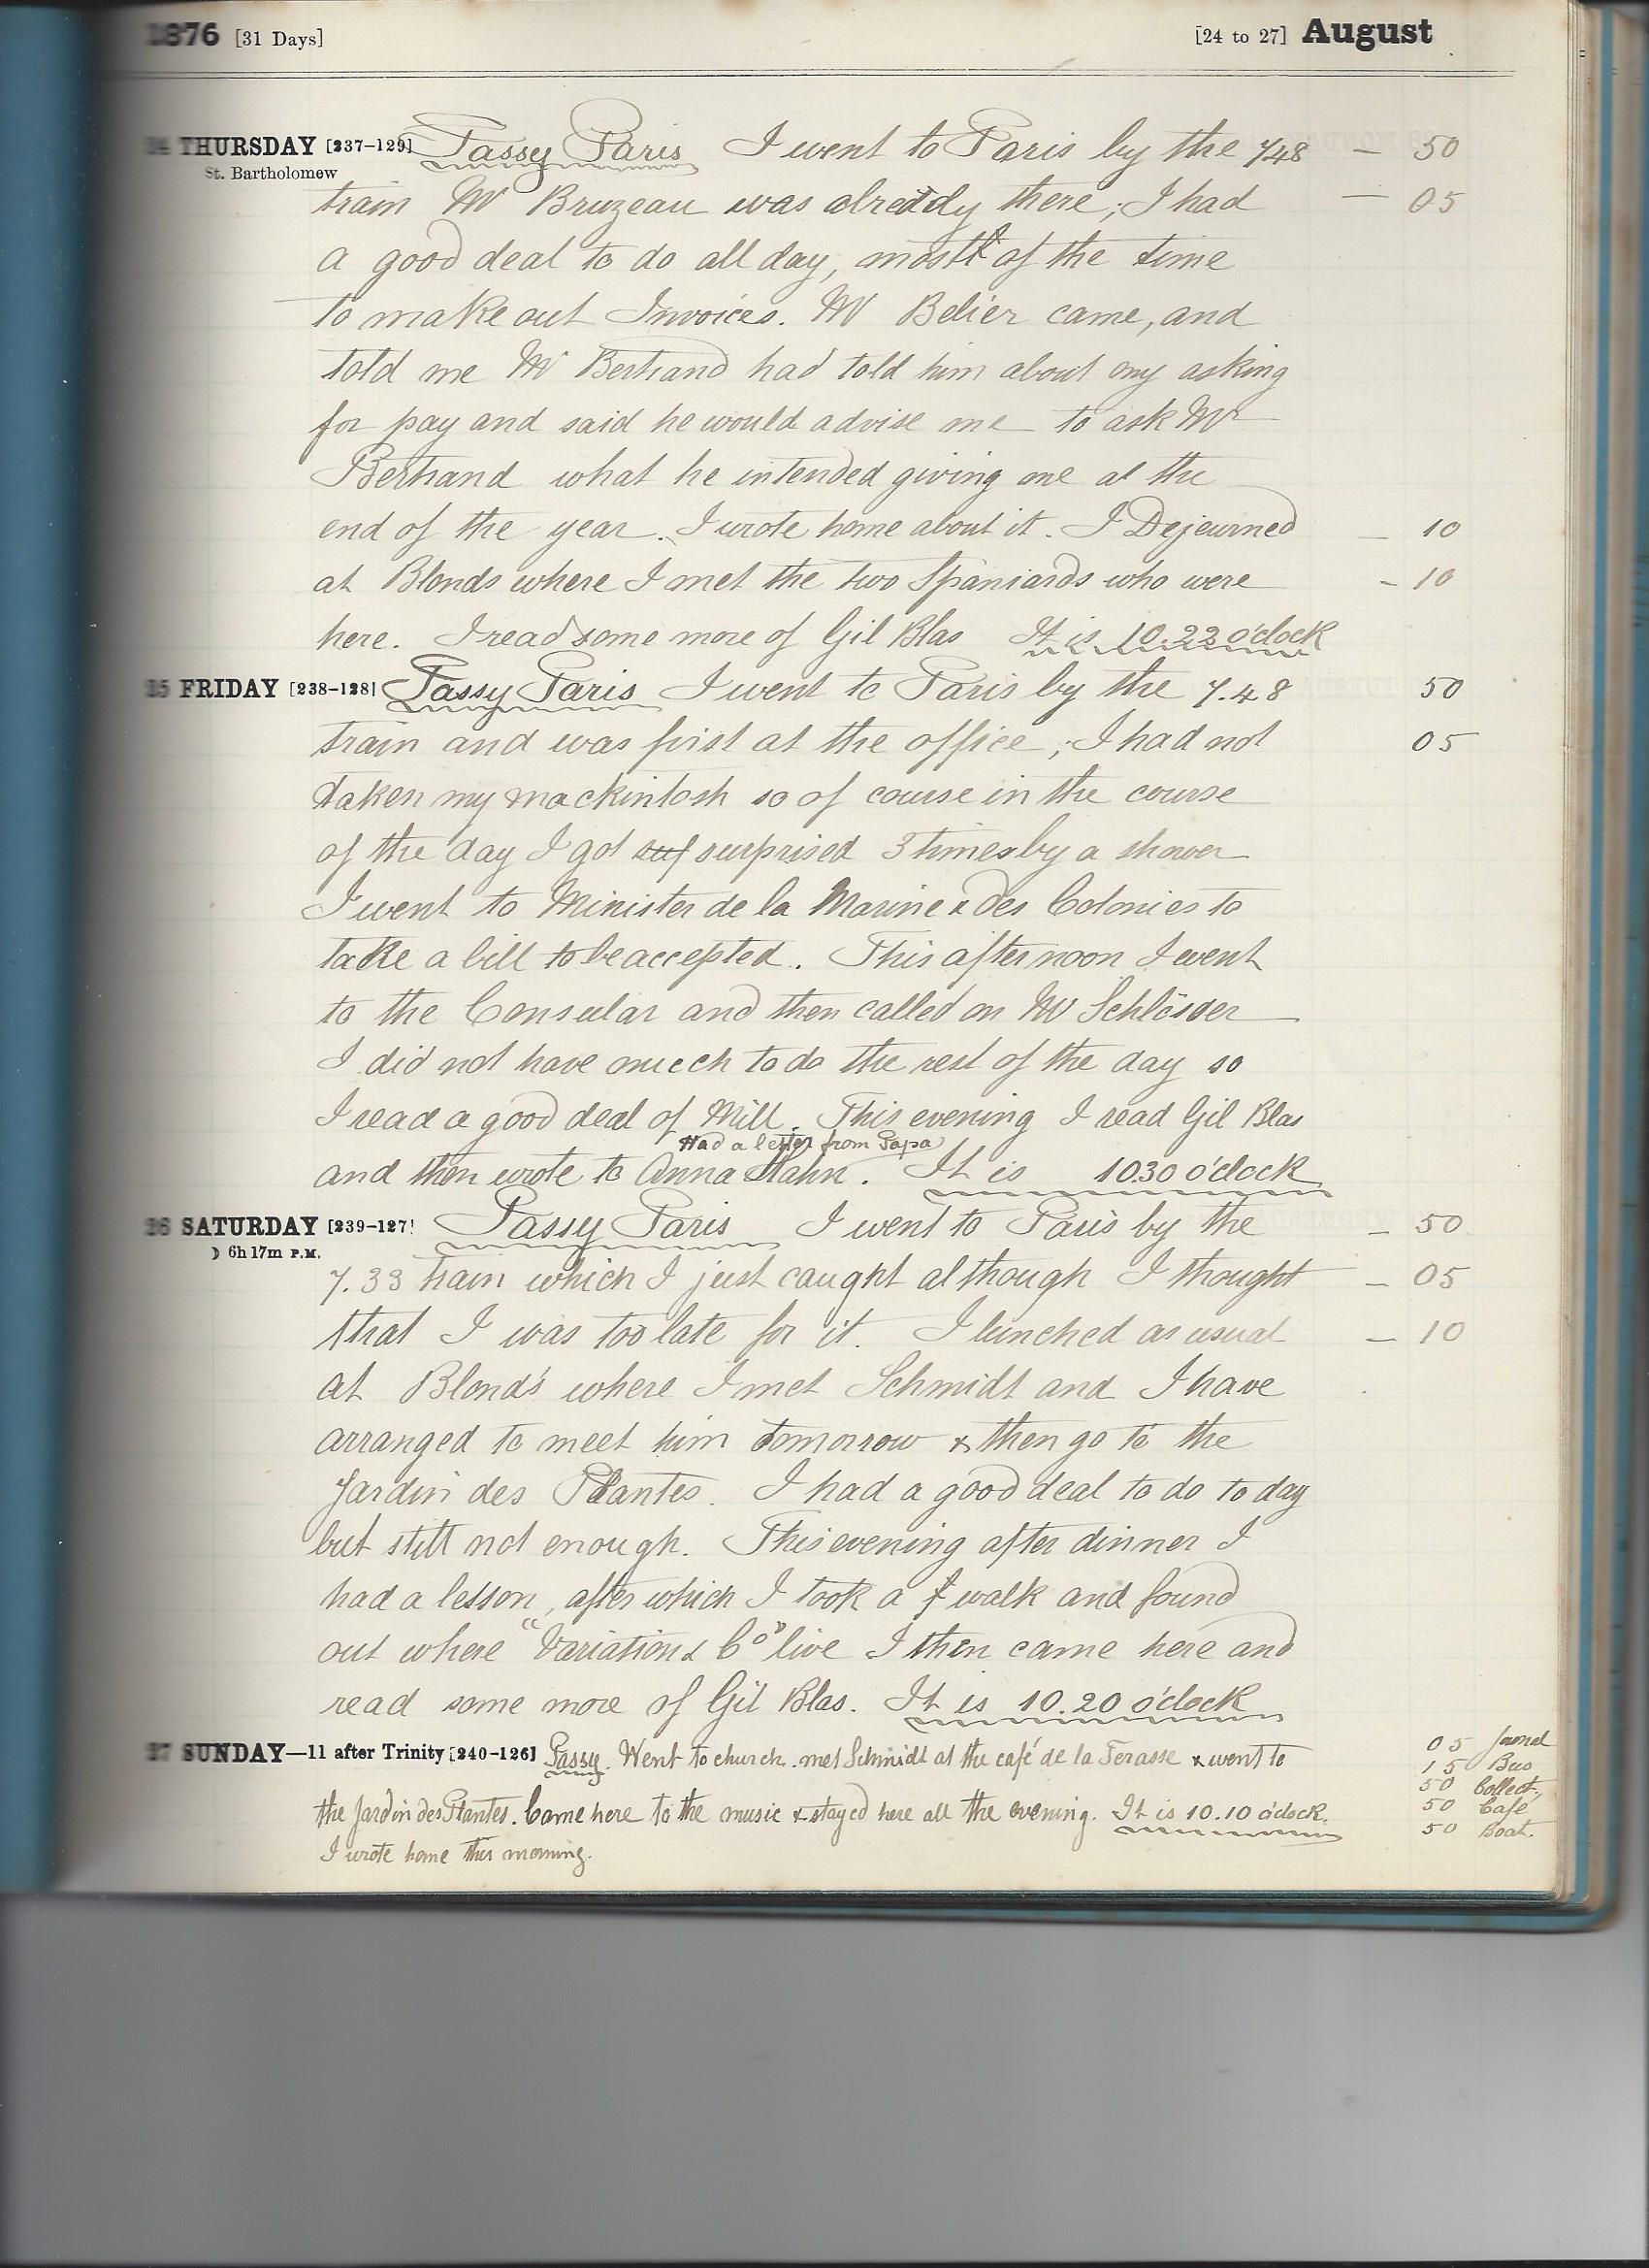 1876 [31 Days] [24 to 27] August
24 THURSDAY [237-129] Passy Paris I went to Paris by the 7.48 — 50
St. Bartholomew
train Mr Bruzeau was already there; I had — 05
a good deal to do all day, most of the time
to make out Invoices. Mr Belier came, and
told me Mr Bertrand had told him about my asking
for pay and said he would advise me to ask Mr
Bertrand what he intended giving me at the
end of the year. I wrote home about it. I Dejeuned — 10
at Blonds where I met the two Spaniards who were — 10
here. I read some more of Gil Blas It is 10.22 o'clock
25 FRIDAY [238-128] Passy Paris I went to Paris by the 7.48 50
train and was first at the office; I had not 05
taken my mackintosh so of course in the course
of the day I got suf surprised 3 times by a shower
I went to Minister de la Marine & des Colonies to
take a bill to be accepted. This afternoon I went
to the Consular and then called on Mr Schlösser
I did not have much to do the rest of the day so
I read a good deal of Mill. This evening I read Gil Blas
Had a letter from Papa
and then wrote to Anna Hahn. It is 10.30 o'clock
26 SATURDAY [239-127] Passy Paris I went to Paris by the — 50
☽ 6h 17m P.M.
7.33 train which I just caught although I thought — 05
that I was too late for it. I lunched as usual — 10
at Blond's where I met Schmidt and I have
arranged to meet him tomorrow & then go to the
Jardin des Plantes. I had a good deal to do to day
but still not enough. This evening after dinner I
had a lesson, after which I took a walk and found
out where "Variation & Co" live I then came here and
read some more of Gil Blas. It is 10.20 o'clock
27 SUNDAY—11 after Trinity [240-126] Passy. Went to church. met Schmidt at the café de la Terasse & went to
the Jardin des Plantes. Came here to the music & stayed here all the evening. It is 10.10 o'clock.
I wrote home this morning.
05 Journal
15 Bus
50 Collect.
50 Café
50 Boat.